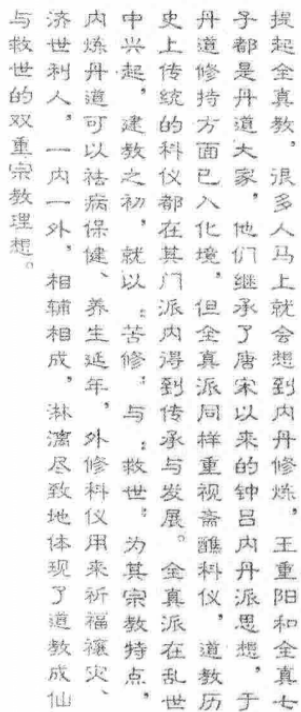 提起全真教，很多人马上就会想到内丹修炼，王重阳和全真七
子都是丹道大家，他们继承了唐宋以来的钟吕内丹派思想，于
丹道修持方面已入化境，但全真派同样重视斋醮科仪，道教历
史上传统的科仪都在其门派内得到传承与发展。全真派在乱世
中兴起，建教之初，就以“苦修”与“救世”为其宗教特点，
内炼丹道可以祛病保健、养生延年，外修科仪用来祈福禳灾、
济世利人，一内一外，相辅相成，淋漓尽致地体现了道教成仙
与救世的双重宗教理想。